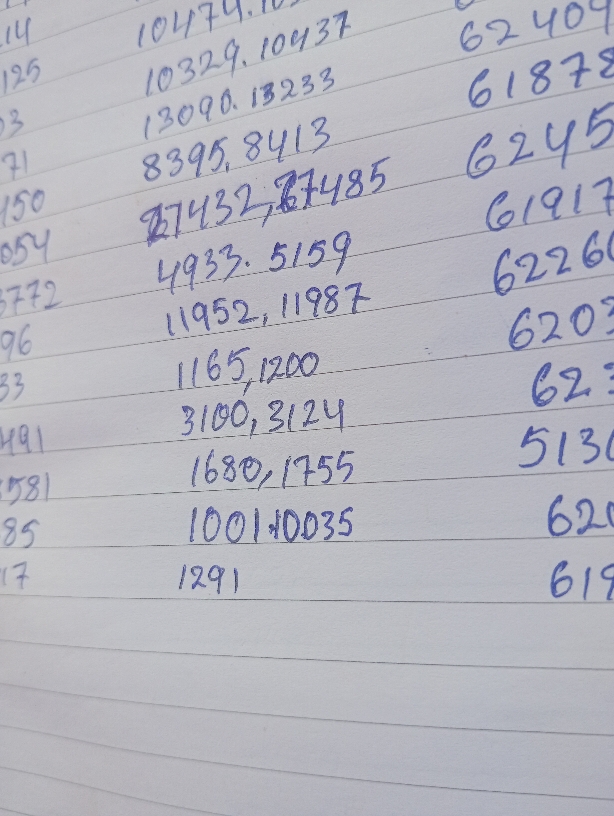 14 10474.10 
125 10329.10437 62409
03 13090.13233 61878
71 8395,8413 6245
150 27432,27485 61917
054 4933. 5159 6226
3772 11952, 11987 6203
96 1165,1200 623
33 3100,3124 513
491 1680,1755 620
581 10035 619
85 1291
17